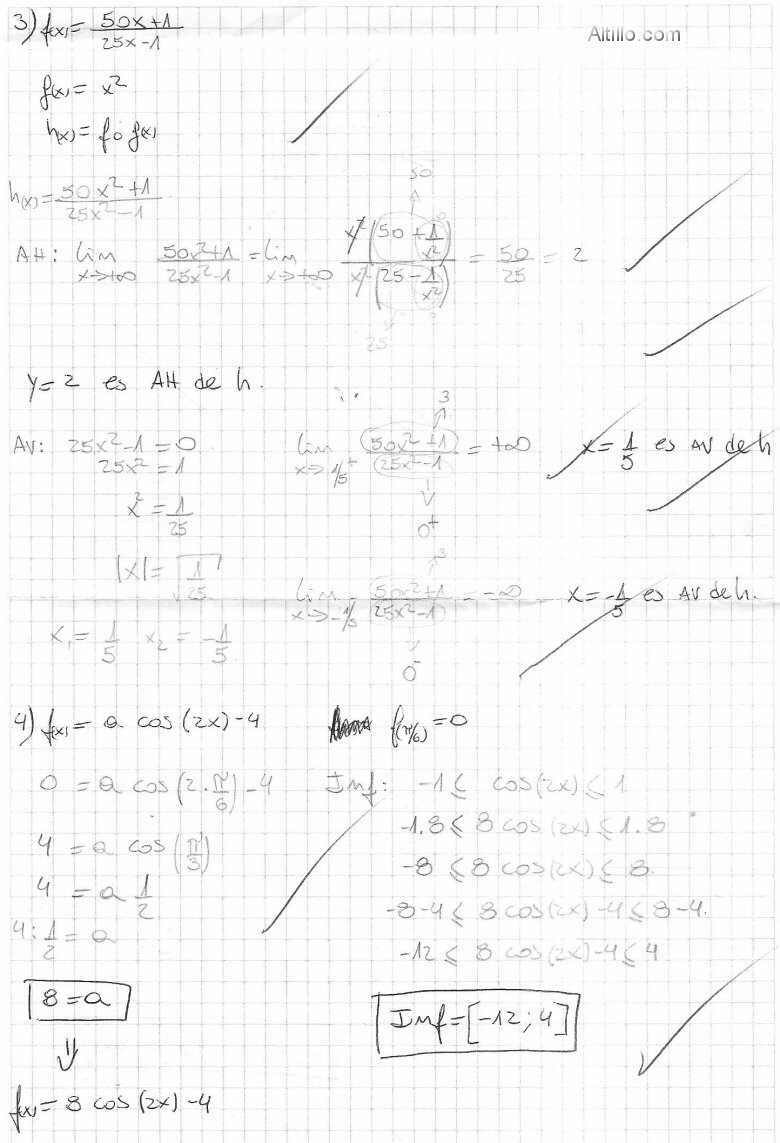 Altillo.com
3) f(x) = (50x+1)/(25x-1)
g(x) = x²
h(x) = f∘g(x)
h(x) = (50x²+1)/(25x²-1)
AH: lim x→+∞ (50x²+1)/(25x²-1) = lim x→+∞ x²(50 + 1/x²)/x²(25 - 1/x²) = 50/25 = 2
50 0
25 0
y = 2 es AH de h.
AV: 25x²-1 = 0
25x² = 1
x² = 1/25
|x| = √(1/25)
x₁ = 1/5 x₂ = -1/5
lim x→1/5⁺ (50x²+1)/(25x²-1) = +∞ x = 1/5 es AV de h
3
0⁺
lim x→-1/5 (50x²+1)/(25x²-1) = -∞ x = -1/5 es AV de h.
3
0⁻
4) f(x) = a cos(2x) - 4 f(π/6) = 0
0 = a cos(2·π/6) - 4
4 = a cos(π/3)
4 = a 1/2
4 : 1/2 = a
8 = a
⇓
f(x) = 8 cos(2x) - 4
Imf: -1 ≤ cos(2x) ≤ 1
-1.8 ≤ 8 cos(2x) ≤ 1.8
-8 ≤ 8 cos(2x) ≤ 8.
-8-4 ≤ 8 cos(2x) - 4 ≤ 8-4.
-12 ≤ 8 cos(2x) - 4 ≤ 4
Imf = [-12; 4]